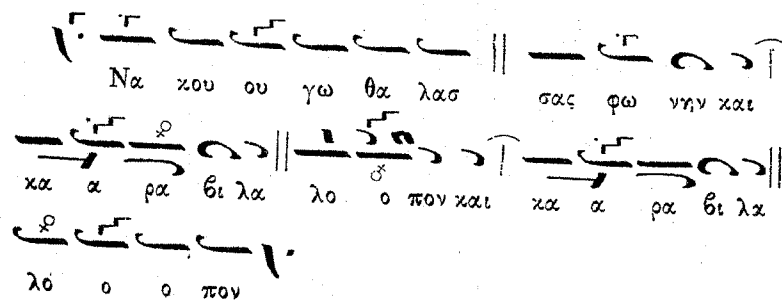 Να κου ου γω θα λασ σας φω νην και
κα α ρα βι λα λο ο πον και κα α ρα βι λα
λο ο ο πον